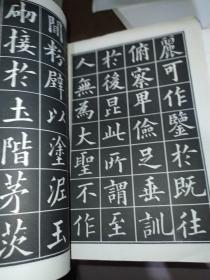 麗可作鑒於既往
俯察卑儉足垂訓
於後昆此所謂至
人無為大聖不作
間粉壁以塗泥玉
砌接於土階茅茨